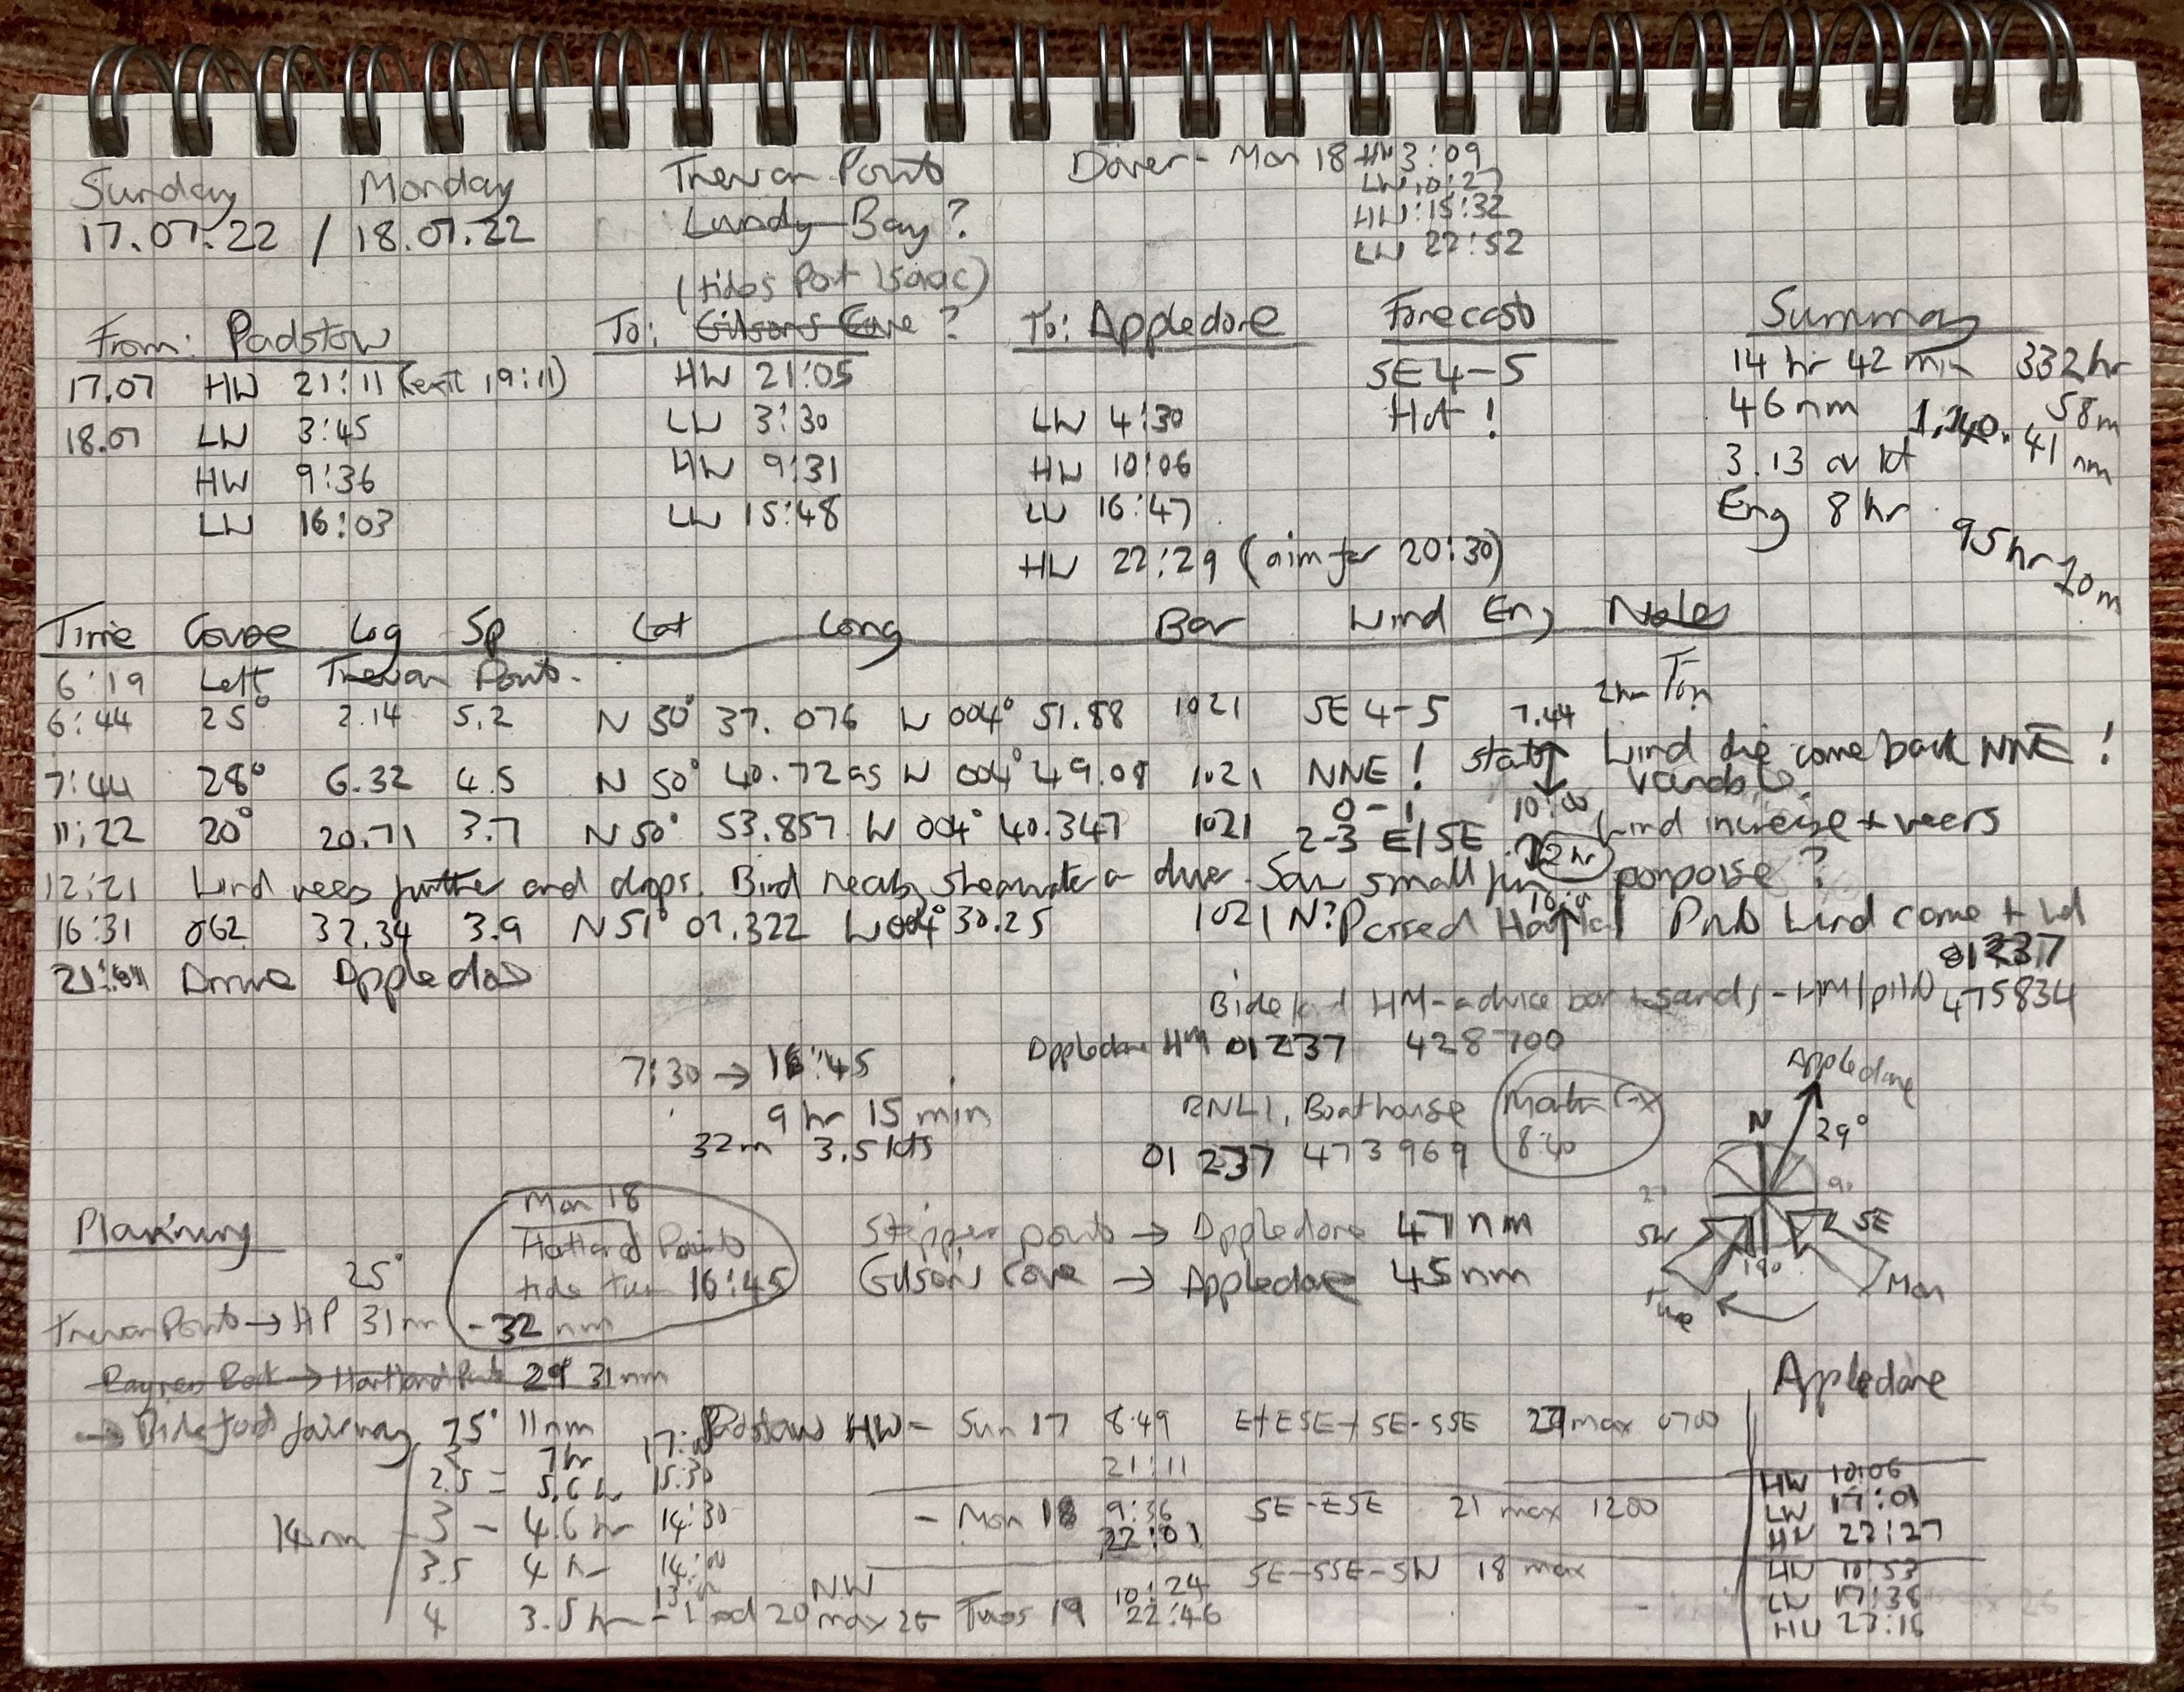 Sunday Monday
17.07.22 / 18.07.22
Trevan Point
Lundy Bay ?
(tides Port Isaac)
Dover - Mon 18 HW 3:09
LW 10:27
HW: 15:32
LW 22:52
From: Padstow
17.07 HW 21:11 (exit 19:11)
18.07 LW 3:45
HW 9:36
LW 16:03
To: Gilsons Cove ?
HW 21:05
LW 3:30
HW 9:31
LW 15:48
To: Appledore
LW 4:30
HW 10:06
LW 16:47
HW 22:29 (aim for 20:30)
Forecast
SE 4-5
Hot !
Summary
14 hr 42 min 332hr
46 nm 58m
3.13 av kt 41 nm
Eng 8 hr
95hr 20m
Time Course Log Sp Lat Long Bar Wind Eng Notes
6:19 Left Trevan Point.
6:44 25° 2.14 5.2 N 50° 37.076 W 004° 51.88 1021 SE 4-5 7.44
7:44 28° 6.32 4.5 N 50° 40.72 W 004° 49.08 1021 NNE ! start Wind die come back NNE !
0-1 10:00 variable.
11:22 20° 20.71 3.7 N 50° 53.857 W 004° 40.347 1021 2-3 E/SE 2hr Wind increase + veers
12:21 Wind veers further and drops. Bird nearby shearwater or diver. Saw small fin porpoise ?
16:31 062 32.34 3.9 N 51° 02.322 W 004° 30.25 1021 N? Passed Hartland Point Wind come
Arrive Appledore
01237
Bideford HM - advice bar + sands - HM/pilot 475834
Appledore HM 01237 428700
7:30 → 16:45
9 hr 15 min
32m 3.5 kts
RNLI, Boathouse
01 237 473969
Martin Cox
8:40
Appledore
N
29°
90
SW SE
180
Mon
Tue
Planning
25°
Trevan Point → HP 31nm - 32 nm
Mon 18
Hartland Point
tide turn 16:45
Stepper point → Appledore 47 nm
Gilsons Cove → Appledore 45nm
→ Hartland Point 29° 31nm
→ Bideford fairway 75° 11nm
2 7hr
2.5 = 5.6 hr 15:30
14nm - 3 - 4.6 hr 14:30
3.5 4 hr 14:00
4 3.5 hr
NW
max 25
Padstow HW - Sun 17 8:49 E+ESE+SE-SSE max 0700
21:11
- Mon 18 9:36 SE-ESE 21 max 1200
22:01
Tues 19 10:24 SE-SSE-SW 18 max
22:46
Appledore
HW 10:06
LW 17:01
HW 22:27
HW 10:53
LW 17:38
HW 23:16